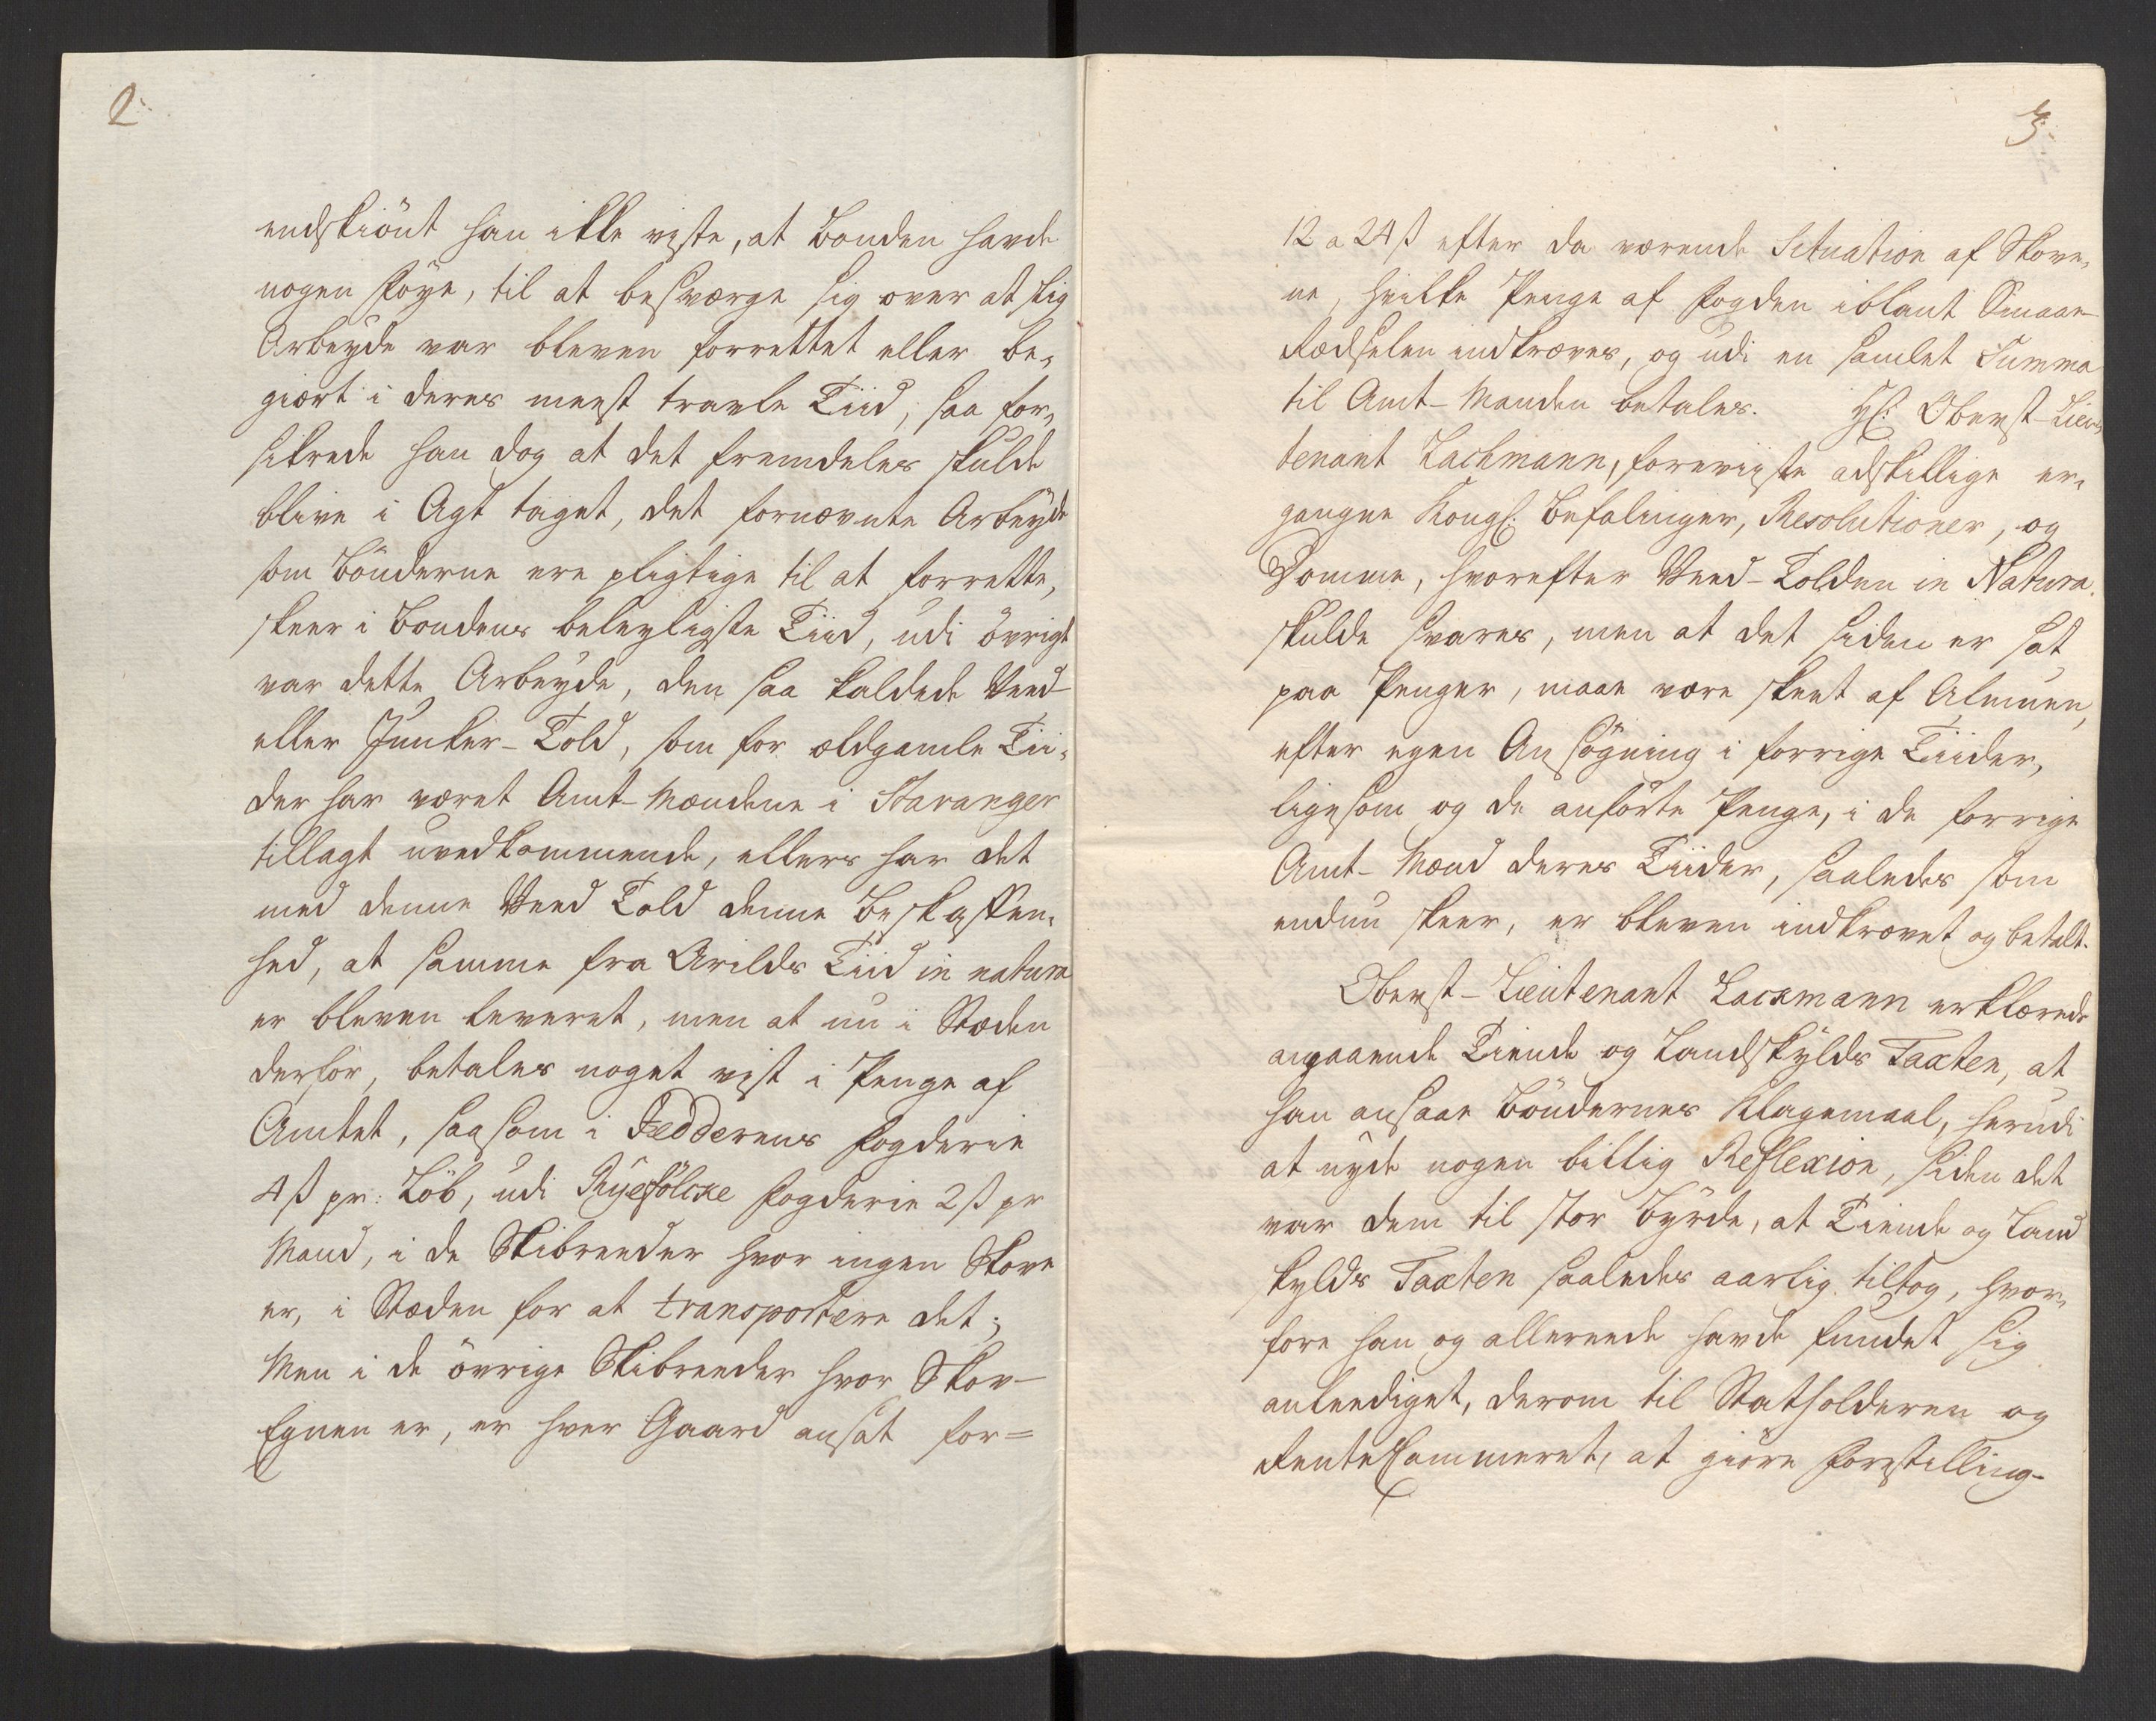 2.
endskiönt han ikke viste, at Bonden havde
nogen Föye, til at besværge sig over at slig
Arbeyde var bleven forrettet eller be-
giært i deres meest travle Tiid, saa for-
sikrede han dog at det fremdeles skulde
blive i Agt taget, det fornævnte Arbeyde
som Bönderne ere pligtige til at forrette,
skeer i Bondens beleyligste Tiid, udi övrigt
var dette Arbeyde, den saa kaldede Veed-
eller Junker-Told, som for ældgamle Tii-
der har været Amt-Mændene i Stavanger
tillagt uvedkommende, ellers har det
med denne Veed Told denne Beskaffen-
hed, at samme fra Arilds Tiid in natura
er bleven leveret, men at nu i Stæden
derfor, betales noget vist i Penge af
Amtet, saasom i Jedderens Fogderie
4 ß pr: Löb, udi Ryefölcke Fogderie 2 ß pr
Mand, i de Skibreeder hvor ingen Skove
er, i Stæden for at transportere det;
Men i de övrige Skibreeder hvor Skov-
Egnen er, er hver Gaard ansat for=
3.
12 a 24 ß efter da værende Situation af Skove-
ne, hvilke Penge af Fogden iblant Smaae-
Rædselen indkræves, og udi en samlet Summa
til Amt-Manden betales. Hr: Oberst-Lieu-
tenant Lachmann, foreviiste adskillige er-
gangne Kongl: Befalinger, Resolutioner, og
Domme, hvorefter Veed-Tolden in Natura.
skulde svares, men at det siden er sat
paa Penger, maae være skeet af Almuen,
efter egen Ansögning i forrige Tiider,
ligesom og de anförte Penge, i de forrige
Amt-Mænd deres Tiider, saaledes som
endnu skeer, er bleven indkrævet og betalt.
Oberst-Lieutenant Lackmann erklærede
angaaende Tiende og Landskylds Taxten, at
han ansaae Böndernes Klagemaal, herudi
at nyde nogen billig Reflexion, siden det
var dem til stor Byrde, at Tiende og Land
skylds Taxten saaledes aarlig tiltog, hvor-
fore han og allereede havde fundet sig
anleediget, derom til Statholderen og
RenteCammeret, at giöre Forestilling-